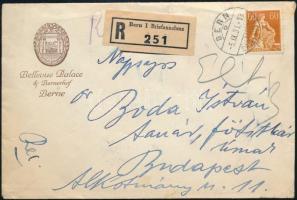 R Bern 1 Briefannahme
251
BERN
60 60
Bellevue Palace
& Bernerhof
Berne
Nagysgos
Dr Boda István
tanár, főtitkár
úrnak
Budapest
Alkotmány u. 11.